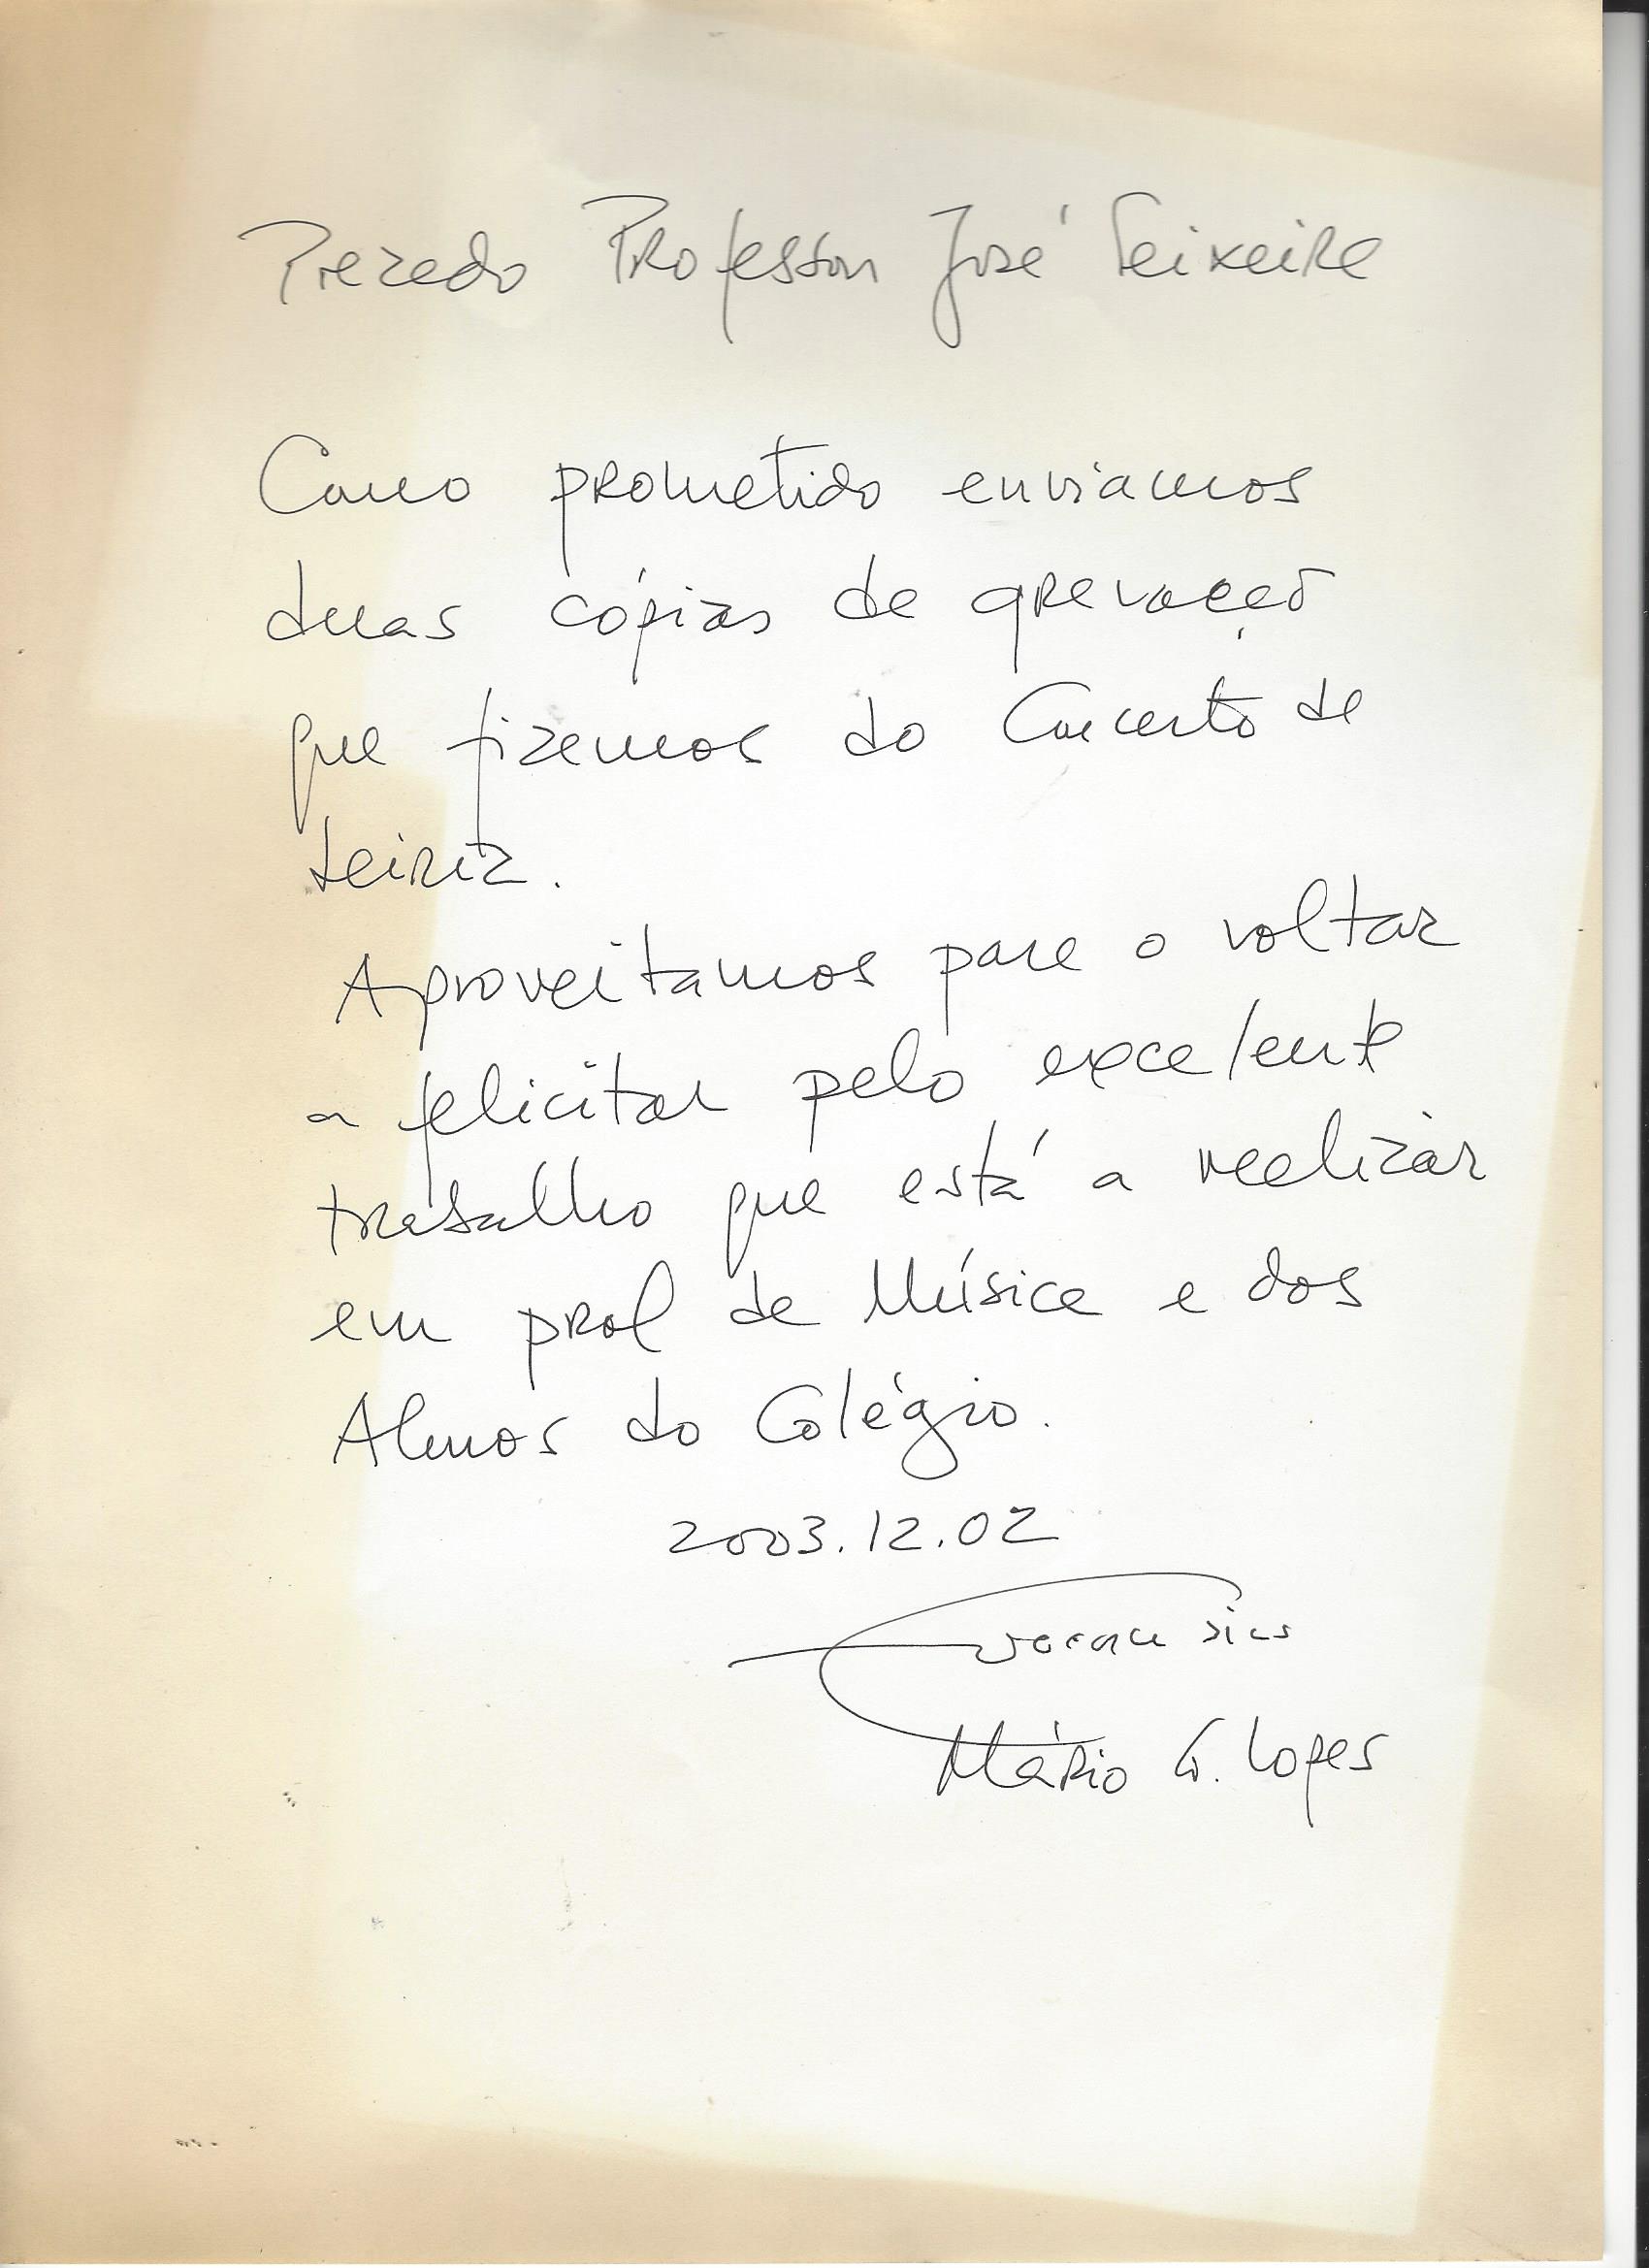 Prezado Professor José Teixeira
Como prometido enviamos
duas cópias da gravação
que fizemos do Concerto de
Leiria.
Aproveitamos para o voltar
a felicitar pelo excelente
trabalho que está a realizar
em prol da Música e dos
Alunos do Colégio.
2003.12.02
Mário G. Lopes